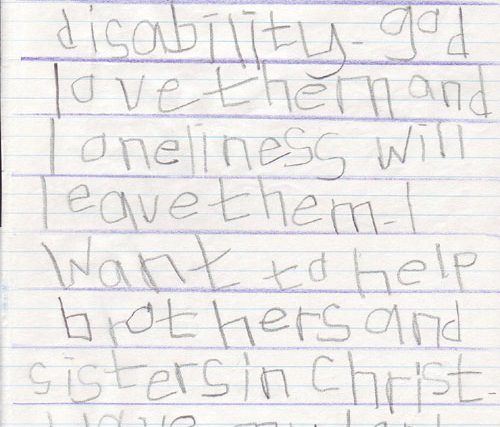 disability. god
love them and
loneliness will
leave them. I
want to help
brothers and
sisters in Christ.